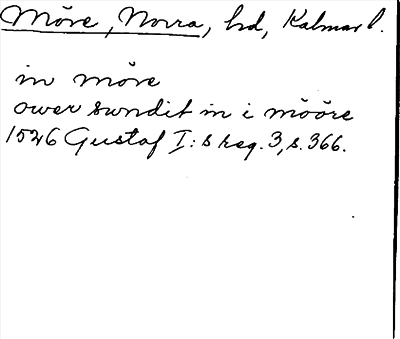 Möre, Norra, hd, Kalmar l.
in möre
ower swndit in i mööre
1526 Gustaf I:s reg. 3, s. 366.